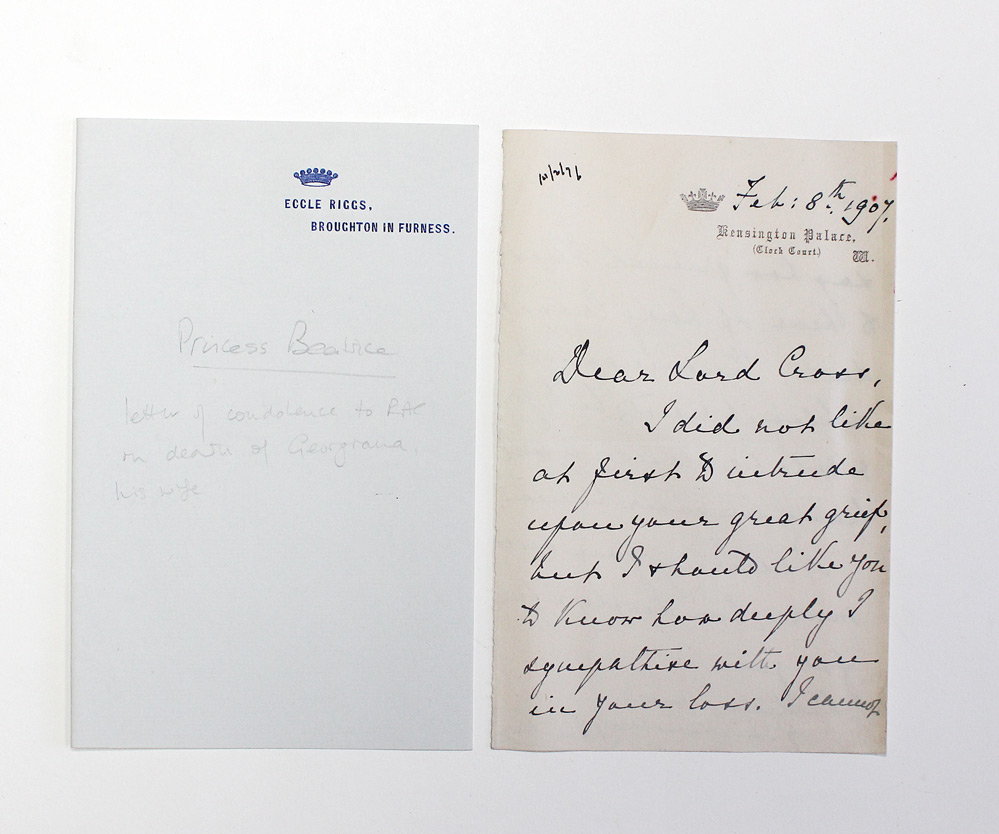 ECCLE RIGGS,
BROUGHTON IN FURNESS.
Princess Beatrice
letter of condolence to RAC
on death of Georgiana,
his wife
Feb: 8th. 1907.
Kensington Palace,
(Clock Court.)
W.
Dear Lord Cross,
I did not like
at first to intrude
upon your great grief,
but I should like you
to know how deeply I
sympathise with you
in your loss. I cannot